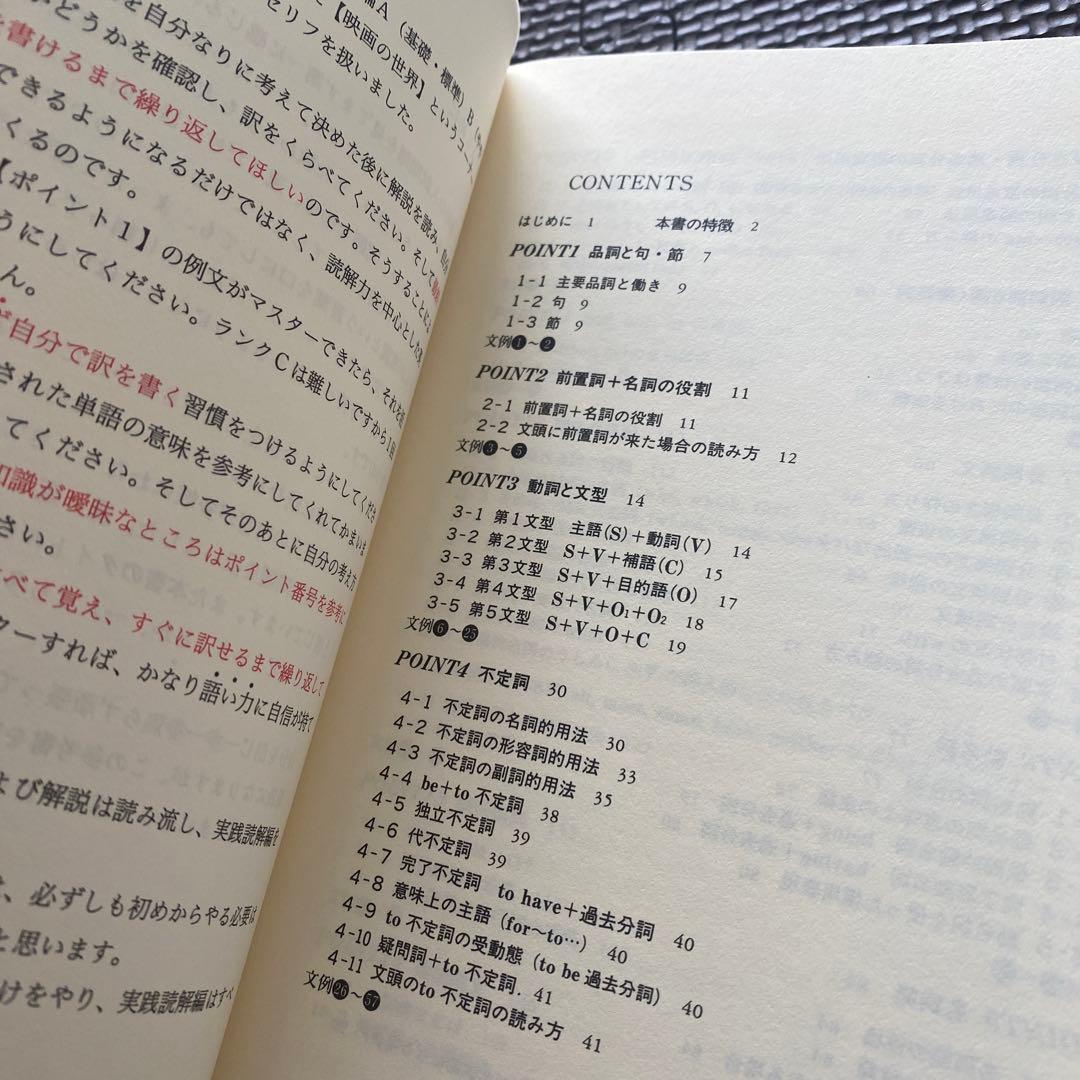 編A（基礎・標準）B（
【映画の世界】というコーナ
セリフを扱いました。
を自分なりに考えて決めた後に解説を読み、
がどうかを確認し、訳をくらべてください。そして
書けるまで繰り返してほしいのです。そうすることによ
できるようになるだけではなく、読解力を中心とした
くるのです。
【ポイント1】の例文がマスターできたら、それを
うにしてください。ランクCは難しいですから1回
ん。
ず自分で訳を書く習慣をつけるようにしてくださ
された単語の意味を参考にしてくれてかまいま
てください。そしてそのあとに自分の考え方
知識が曖昧なところはポイント番号を参考に
さい。
べて覚え、すぐに訳せるまで繰り返して
ターすれば、かなり語い力に自信が持て
よび解説は読み流し、実践読解編を
は、必ずしも初めからやる必要は
と思います。
けをやり、実践読解編はすべ
CONTENTS
はじめに 1 本書の特徴 2
POINT1 品詞と句・節 7
1-1 主要品詞と働き 9
1-2 句 9
1-3 節 9
文例❶～❷
POINT2 前置詞＋名詞の役割 11
2-1 前置詞＋名詞の役割 11
2-2 文頭に前置詞が来た場合の読み方 12
文例❸～❺
POINT3 動詞と文型 14
3-1 第1文型 主語(S)＋動詞(V) 14
3-2 第2文型 S＋V＋補語(C) 15
3-3 第3文型 S＋V＋目的語(O) 17
3-4 第4文型 S＋V＋O₁＋O₂ 18
3-5 第5文型 S＋V＋O＋C 19
文例❻～㉕
POINT4 不定詞 30
4-1 不定詞の名詞的用法 30
4-2 不定詞の形容詞的用法 33
4-3 不定詞の副詞的用法 35
4-4 be＋to 不定詞 38
4-5 独立不定詞 39
4-6 代不定詞 39
4-7 完了不定詞 to have＋過去分詞 40
4-8 意味上の主語（for～to…） 40
4-9 to 不定詞の受動態（to be 過去分詞） 40
4-10 疑問詞＋to 不定詞. 41
4-11 文頭のto 不定詞の読み方 41
文例㉖～57